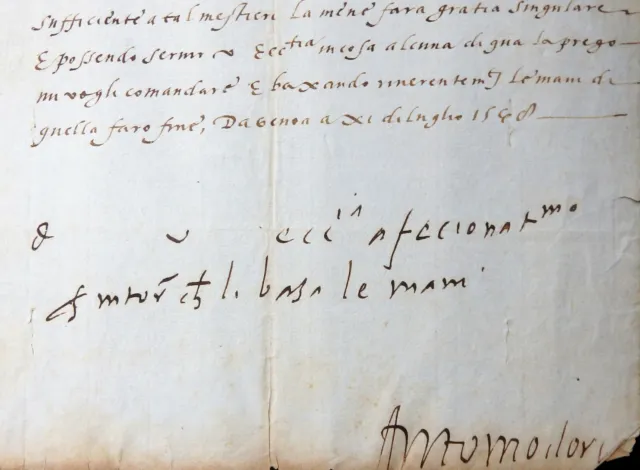 sufficiente a tal mestieri la mene fara gratia singulare
E possendo seruir v Ecc.tia in cosa alcuna di qua la prego
mi vogli comandare E baxando riuerentem. le mani di
quella faro fine, Da Genoa a XI di luglio 15
D v ecc.ia afecionat.mo
ser.tor ch li basa le mani
Antonio dori